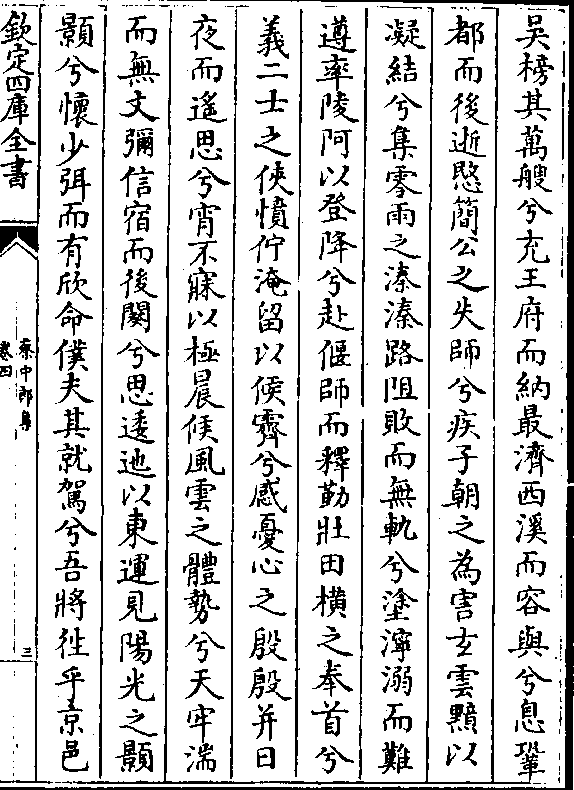 吴榜其萬艘兮充王府而納最濟西溪而容與兮息鞏
都而後逝愍簡公之失師兮疾子朝之為害玄雲黯以
凝結兮集零雨之溱溱路阻敗而無軌兮塗濘溺而難
遵率陵阿以登降兮赴偃師而釋勤壯田橫之奉首兮
義二士之俠憤佇淹留以候霽兮感憂心之殷殷并日
夜而遙思兮宵不寐以極晨候風雲之體勢兮天牢湍
而無文彌信宿而後闋兮思逶迤以東運見陽光之顥
顥兮懷少弭而有欣命僕夫其就駕兮吾將徃乎京邑
欽定四庫全書
蔡中郎集
卷四
三